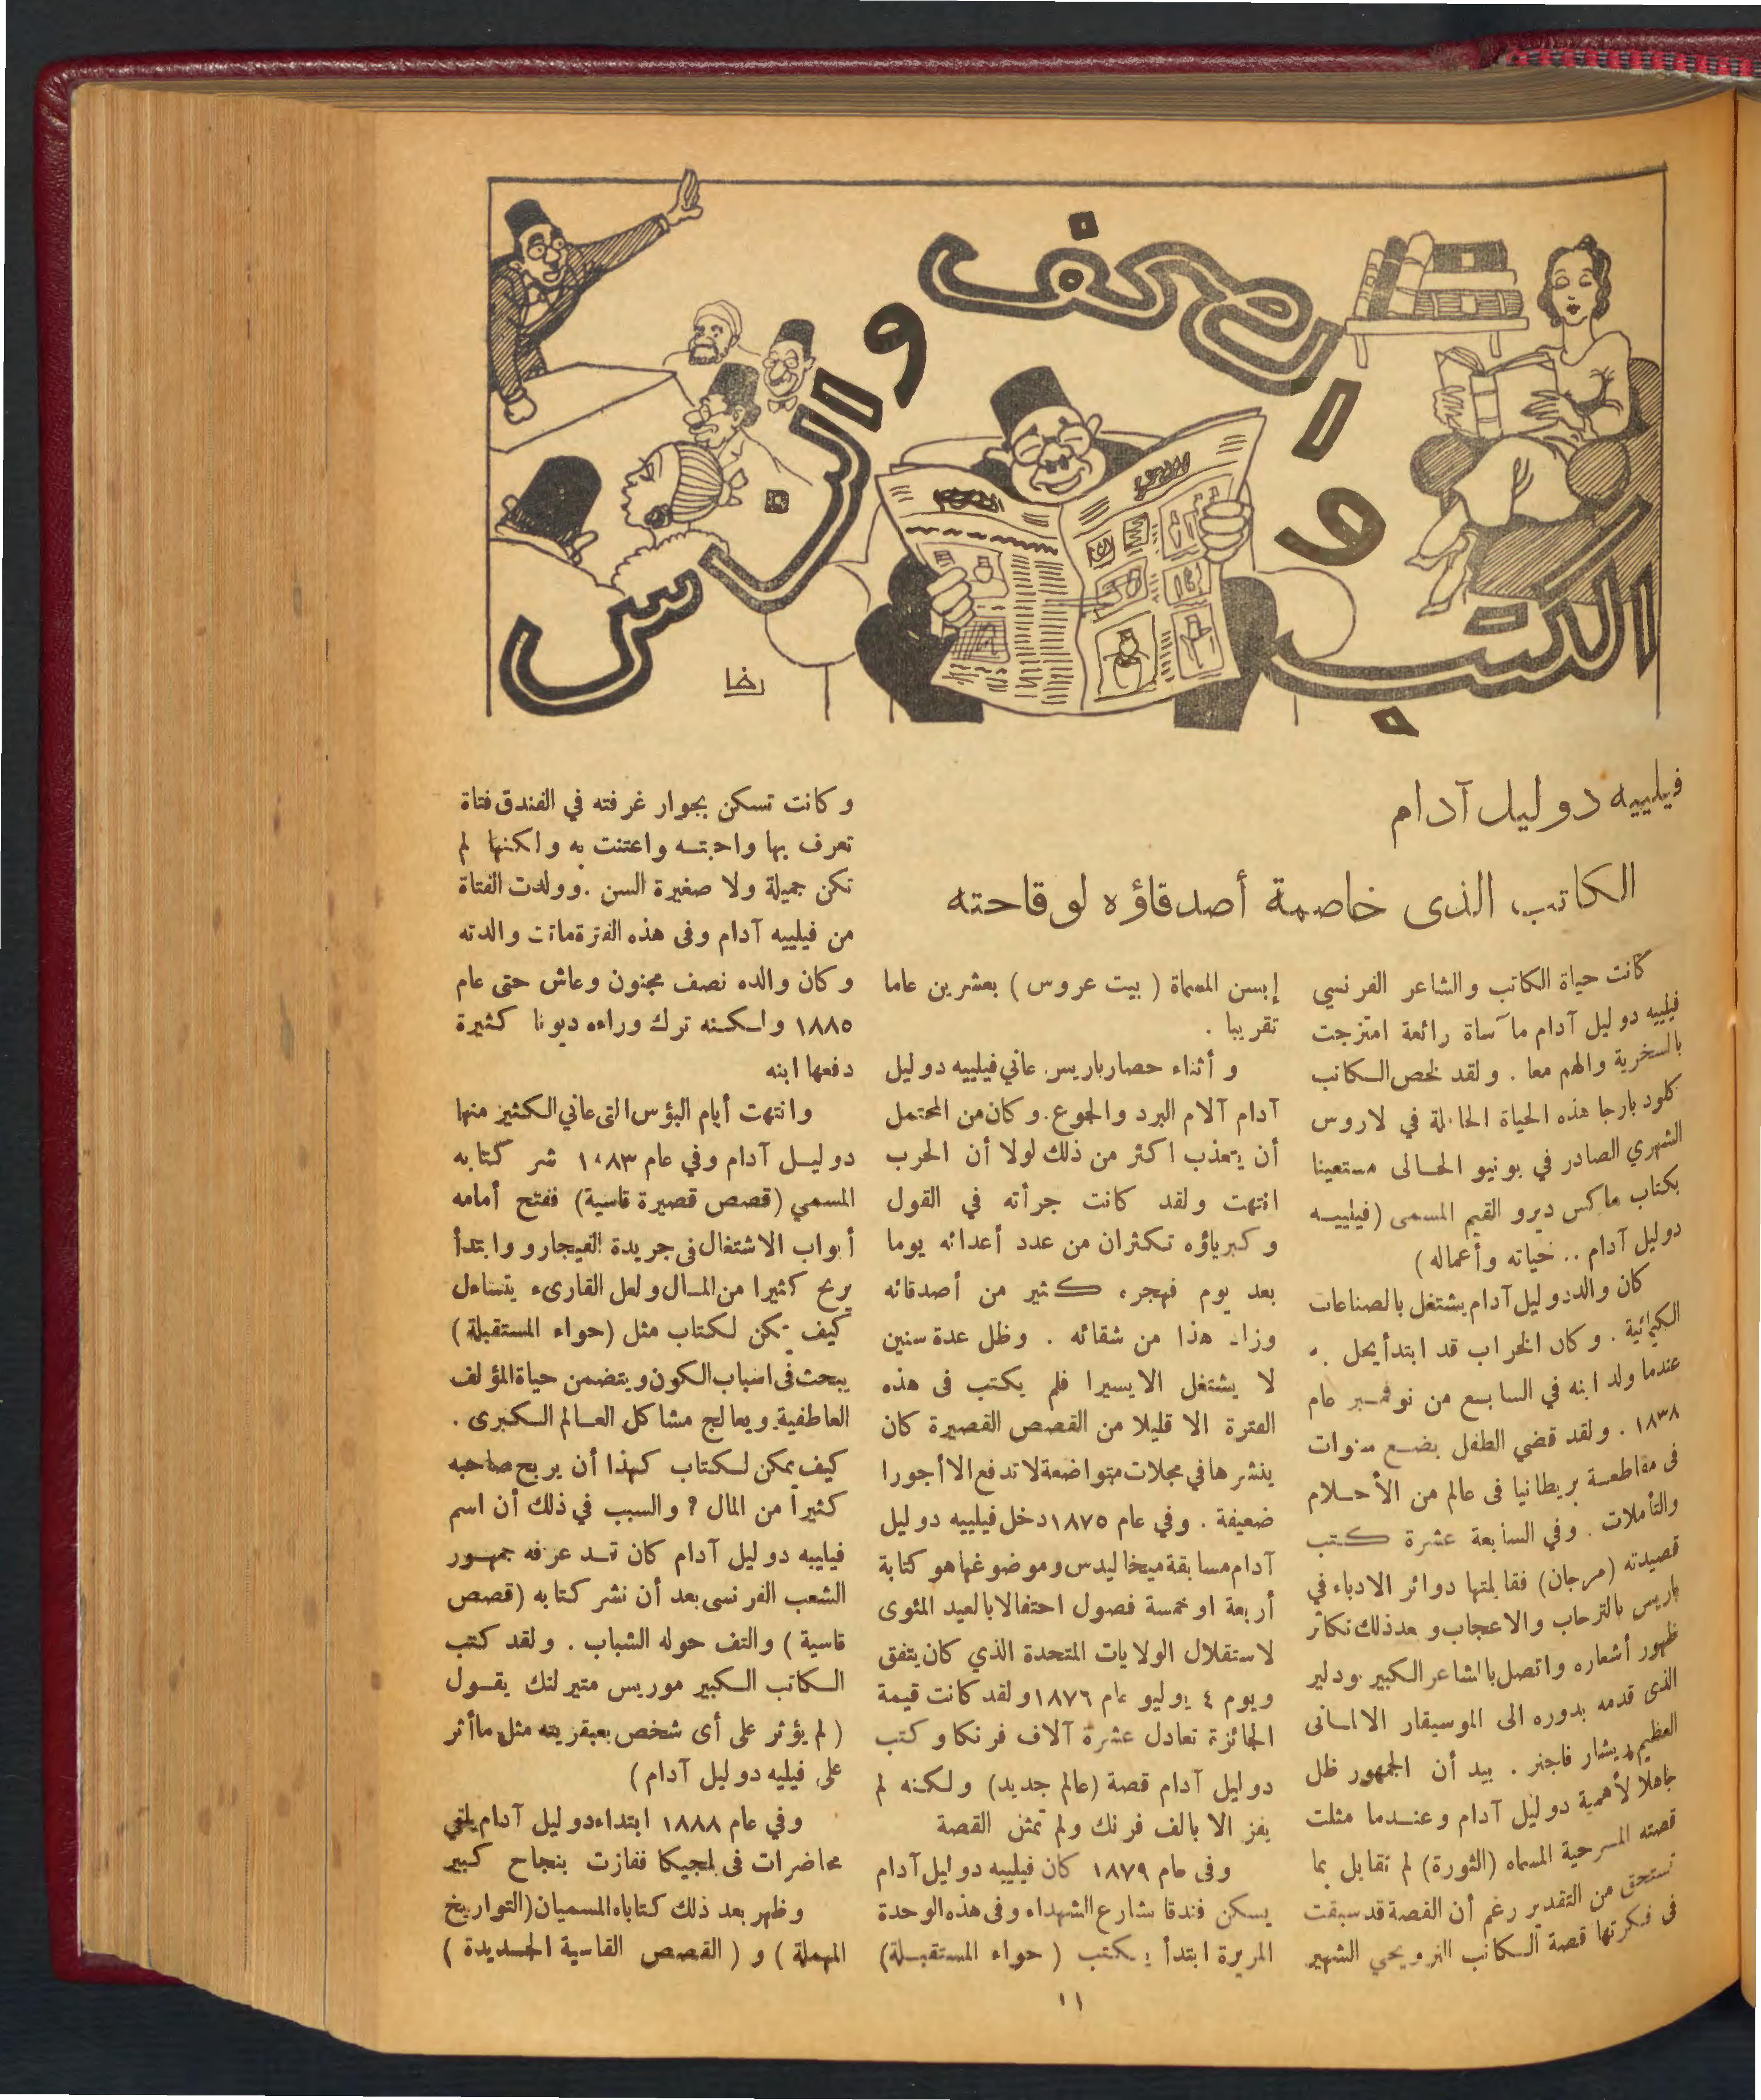 الكتب و الصحف والناس
رخا
فيلييه دو ليل آدام
الكاتب الذى خاصمة أصدقاؤه لوقاحته
كانت حياة الكاتب والشاعر الفرنسي
فيلييه دو ليل آدام مأساة رائعة امتزجت
بالسخرية والهم معا . ولقد لخص الكاتب
كلود بارجا هذه الحياة الحافلة في لاروس
الشهري الصادر في يونيو الحالى مستعينا
بكتاب ماكس ديرو القيم المسمى (فيلييه
دوليل آدام .. حياته وأعماله)
كان والد دوليل آدام يشتغل بالصناعات
الكيمائية . وكان الخراب قد ابتدأ يحل به
عندما ولد ابنه في السابع من نوفمبر عام
١٨٣٨ . ولقد قضي الطفل بضع سنوات
فى مقاطعة بريطانيا فى عالم من الأحلام
والتأملات . وفي السابعة عشرة كتب
قصيدته (مرجان) فقابلتها دوائر الادباء في
باريس بالترحاب والاعجاب وبعد ذلك تكاثر
ظهور أشعاره واتصل بالشاعر الكبير بودلير
الذى قدمه بدوره الى الموسيقار الالمانى
العظيم ريشار فاجنر . بيد أن الجمهور ظل
جاهلا لأهمية دوليل آدام وعندما مثلت
قصته المسرحية المسماه (الثورة) لم تقابل بما
تستحق من التقدير رغم أن القصة قد سبقت
فى فكرتها قصة الكاتب النرويجي الشهير
إبسن المسماة (بيت عروس) بعشرين عاما
تقريبا .
و أثناء حصار باريس عاني فيلييه دوليل
آدام آلام البرد والجوع . وكان من المحتمل
أن يتعذب اكثر من ذلك لولا أن الحرب
انتهت ولقد كانت جرأته في القول
وكبرياؤه تكثران من عدد أعدائه يوما
بعد يوم فهجره كثير من أصدقائه
وزاد هذا من شقائه . وظل عدة سنين
لا يشتغل الا يسيرا فلم يكتب فى هذه
الفترة الا قليلا من القصص القصيرة كان
ينشرها في مجلات متواضعة لا تدفع الا أجورا
ضعيفة . وفي عام ١٨٧٥ دخل فيلييه دوليل
آدام مسابقة ميخاليدس وموضوعها هو كتابة
أربعة او خمسة فصول احتفالا بالعيد المئوى
لاستقلال الولايات المتحدة الذي كان يتفق
ويوم ٤ يوليو عام ١٨٧٦ ولقد كانت قيمة
الجائزة تعادل عشرة آلاف فرنكا وكتب
دوليل آدام قصة (عالم جديد) ولكنه لم
يفز الا بالف فرنك ولم تمثن القصة
وفى عام ١٨٧٩ كان فيلييه دوليل آدام
يسكن فندقا بشارع الشهداء وفى هذه الوحدة
المريرة ابتدأ يكتب (حواء المستقبلة)
وكانت تسكن بجوار غرفته في الفندق فتاة
تعرف بها واحبته واعتنت به ولكنها لم
تكن جميلة ولا صغيرة السن . وولدت الفتاة
من فيلييه آدام وفى هذه الفترة ماتت والدته
وكان والده نصف مجنون وعاش حتى عام
١٨٨٥ ولكنه ترك وراءه ديونا كثيرة
دفعها ابنه
وانتهت أيام البؤس التى عاني الكثير منها
دوليل آدام وفي عام ١٨٨٣ نشر كتابه
المسمي (قصص قصيرة قاسية) ففتح أمامه
أبواب الاشتغال فى جريدة الفيجارو وابتدأ
يربح كثيرا من المال ولعل القارىء يتساءل
كيف يمكن لكتاب مثل (حواء المستقبلة)
يبحث فى اسباب الكون ويتضمن حياة المؤلف
العاطفية ويعالج مشاكل العالم الكبرى .
كيف يمكن لكتاب كهذا أن يربح صاحبه
كثيراً من المال ? والسبب في ذلك أن اسم
فيلييه دوليل آدام كان قد عرفه جمهور
الشعب الفرنسى بعد أن نشر كتابه (قصص
قاسية) والتف حوله الشباب . ولقد كتب
الكاتب الكبير موريس متيرلنك يقول
(لم يؤثر على أى شخص بعبقريته مثل ما أثر
على فيليه دوليل آدام)
وفي عام ١٨٨٨ ابتداء دوليل آدام يلقي
محاضرات فى بلجيكا ففازت بنجاح كبير
وظهر بعد ذلك كتاباه المسميان (التواريخ
المهملة) و (القصص القاسية الجديدة)
١١